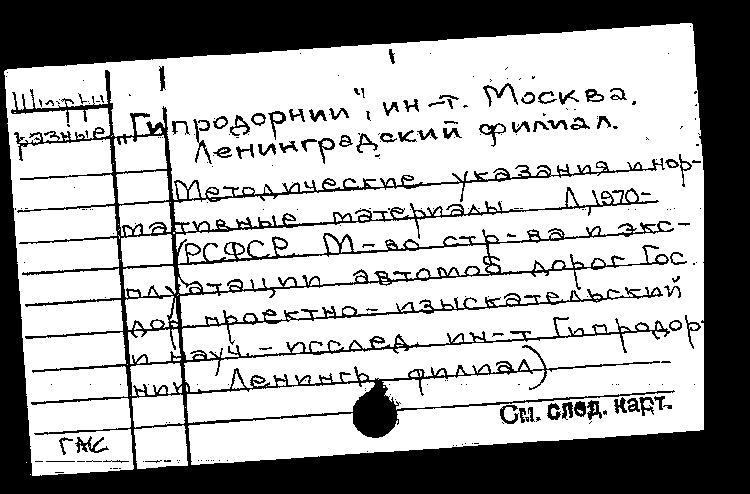 Шифры
разные
„Гипродорнии", ин-т. Москва.
Ленинградский филиал.
Методические указания и нор-
мативные материалы. Л, 1970-
(РСФСР. М-во стр-ва и экс-
плуатации автомоб дорог Гос
дор проектно-изыскательский
и науч.-исслед. ин-т Гипродор-
нии. Ленингр. филиал)
См. след. карт.